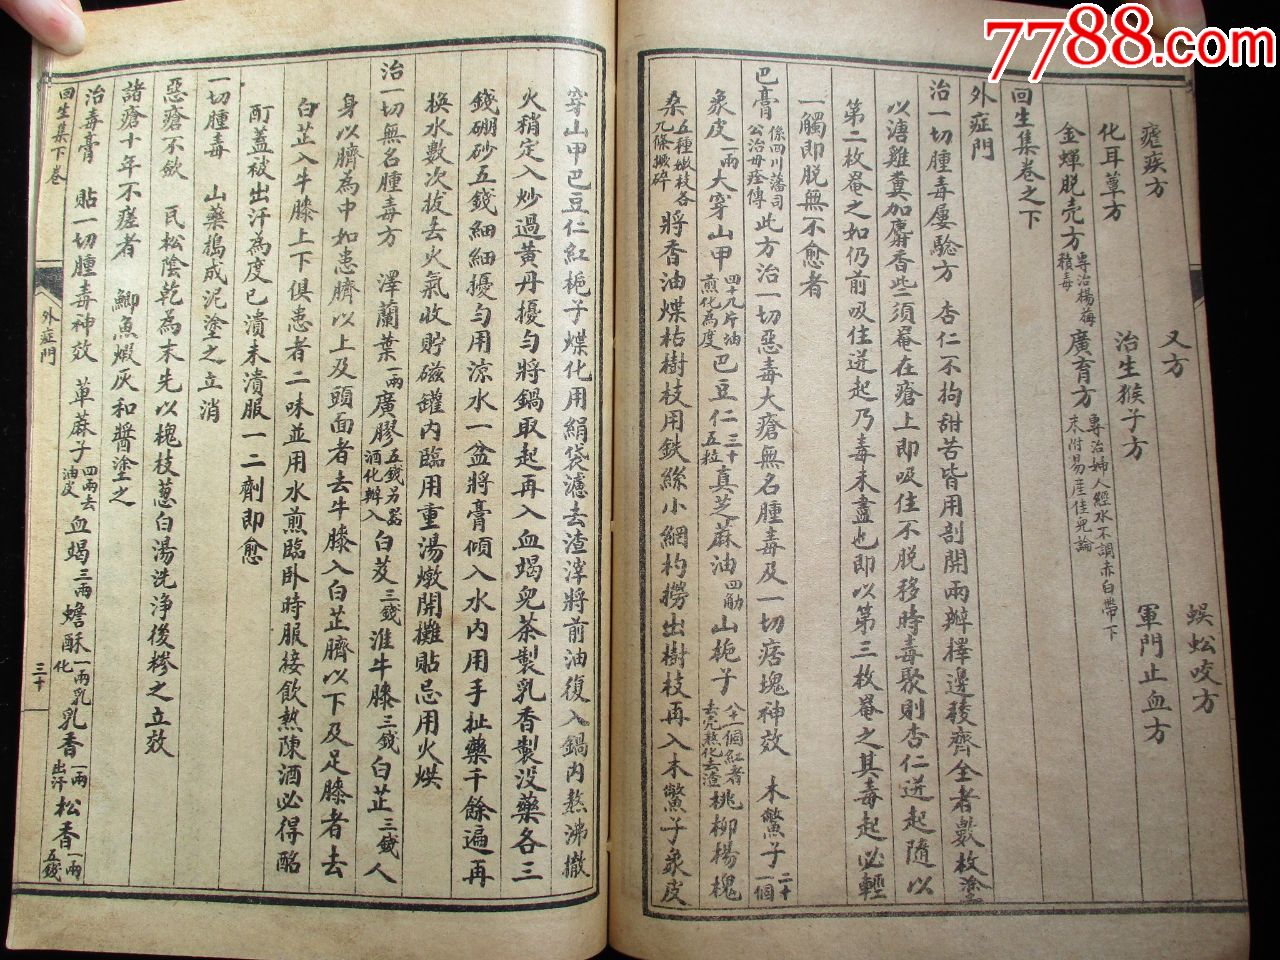 7788.com
蜈蚣咬方
又方
軍門止血方
瘧疾方
治生猴子方
化耳蕈方
廣育方 專治婦人經水不調赤白帶下末附易產佳兒論
金蟬脫壳方 專治楊梅積毒
回生集卷之下
外症門
治一切腫毒屢驗方 杏仁不拘甜苦皆用剖開兩瓣擇邊稜齊全者數枚塗
以溏雞糞加麝香些須菴在瘡上即吸住不脫移時毒聚則杏仁迸起隨以
第二枚菴之如仍前吸住迸起乃毒未盡也即以第三枚菴之其毒起必輕
一觸即脫無不愈者
巴膏 係四川藩司公治毋痊傳 此方治一切惡毒大瘡無名腫毒及一切痞塊神效 木鱉子 二十一個
象皮 一兩 大穿山甲 四十九片油煎化為度 巴豆仁 三十五粒 真芝蔴油 四觔 山梔子 八十一個紅者去壳熬化去渣 桃柳楊槐
桑 五種嫩枝各九條撅碎 將香油煠枯樹枝用鉄絲小網杓撈出樹枝再入木鱉子象皮
穿山甲巴豆仁紅梔子煠化用絹袋濾去渣滓將前油復入鍋內熬沸撤
火稍定入炒過黃丹擾勻將鍋取起再入血竭兒茶製乳香製没藥各三
錢硼砂五錢細細擾勻用涼水一盆將膏傾入水內用手扯藥千餘遍再
換水數次拔去火氣收貯磁罐內臨用重湯燉開攤貼忌用火烘
治一切無名腫毒方 澤蘭葉 一兩 廣膠 五錢另器酒化辦入 白芨 三錢 淮牛膝 三錢 白芷 三錢 人
身以臍為中如患臍以上及頭面者去牛膝入白芷臍以下及足膝者去
白芷入牛膝上下俱患者二味並用水煎臨卧時服接飲熱陳酒必得酩
酊盖被出汗為度已潰未潰服一二劑即愈
一切腫毒 山藥搗成泥塗之立消
惡瘡不斂 瓦松陰乾為末先以槐枝蔥白湯洗浄後糝之立效
諸瘡十年不瘥者 鯽魚煅灰和醬塗之
治毒膏 貼一切腫毒神效 萆蔴子 四兩去油皮 血竭 三兩 蟾酥 一兩乳化 乳香 一兩出汗 松香 一兩五錢
回生集下卷 外症門 三十